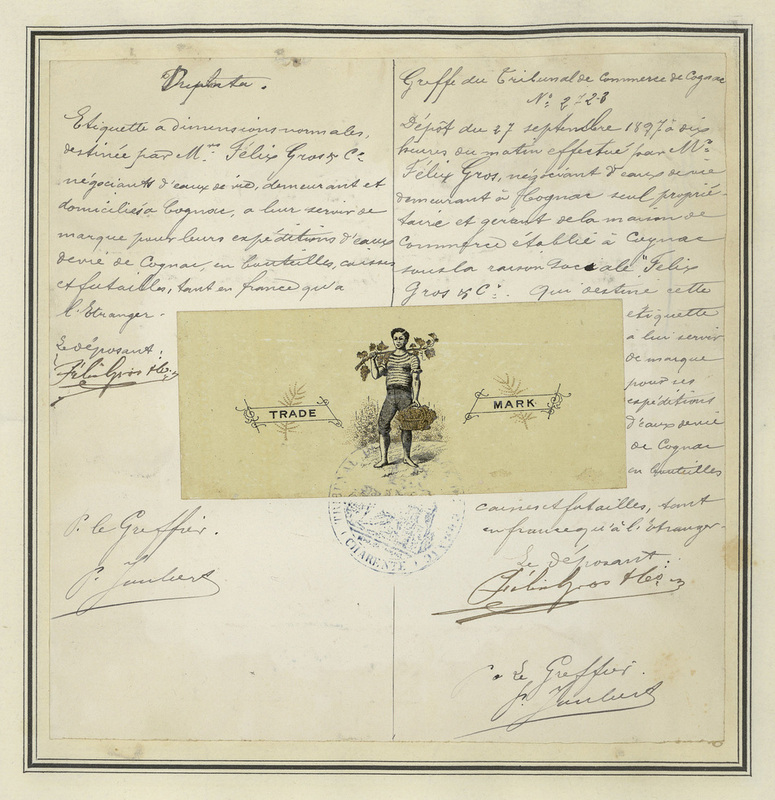 Duplicata.
Etiquette à dimensions normales,
destinée par Mrs Félix Gros & Cie
négociants d'eaux de vie, demeurant et
domiciliés à Cognac, à leur servir de
marque pour leurs expéditions d'eaux
de vie de Cognac, en bouteilles, caisses
et futailles, tant en france qu'à
l'Etranger.
Le déposant:
Félix Gros & Co
P. le Greffier.
P. Joubert
Greffe du Tribunal de Commerce de Cognac
No. 2723
Dépôt du 27 septembre 1897 à dix
heures du matin effectué par Mr.
Félix Gros, négociant d'eaux de vie
demeurant à Cognac seul proprié-
taire et gérant de la maison de
Commerce établie à Cognac
sous la raison Sociale "Félix
Gros & Cie. Qui destine cette
étiquette
à lui servir
de marque
pour ses
expéditions
d'eaux de vie
de Cognac
en bouteilles
caisses et futailles, tant
en france qu'à l'étranger.
Le déposant:
Félix Gros & Co
P. Le Greffier.
P. Joubert
TRADE MARK
(CHARENTE)